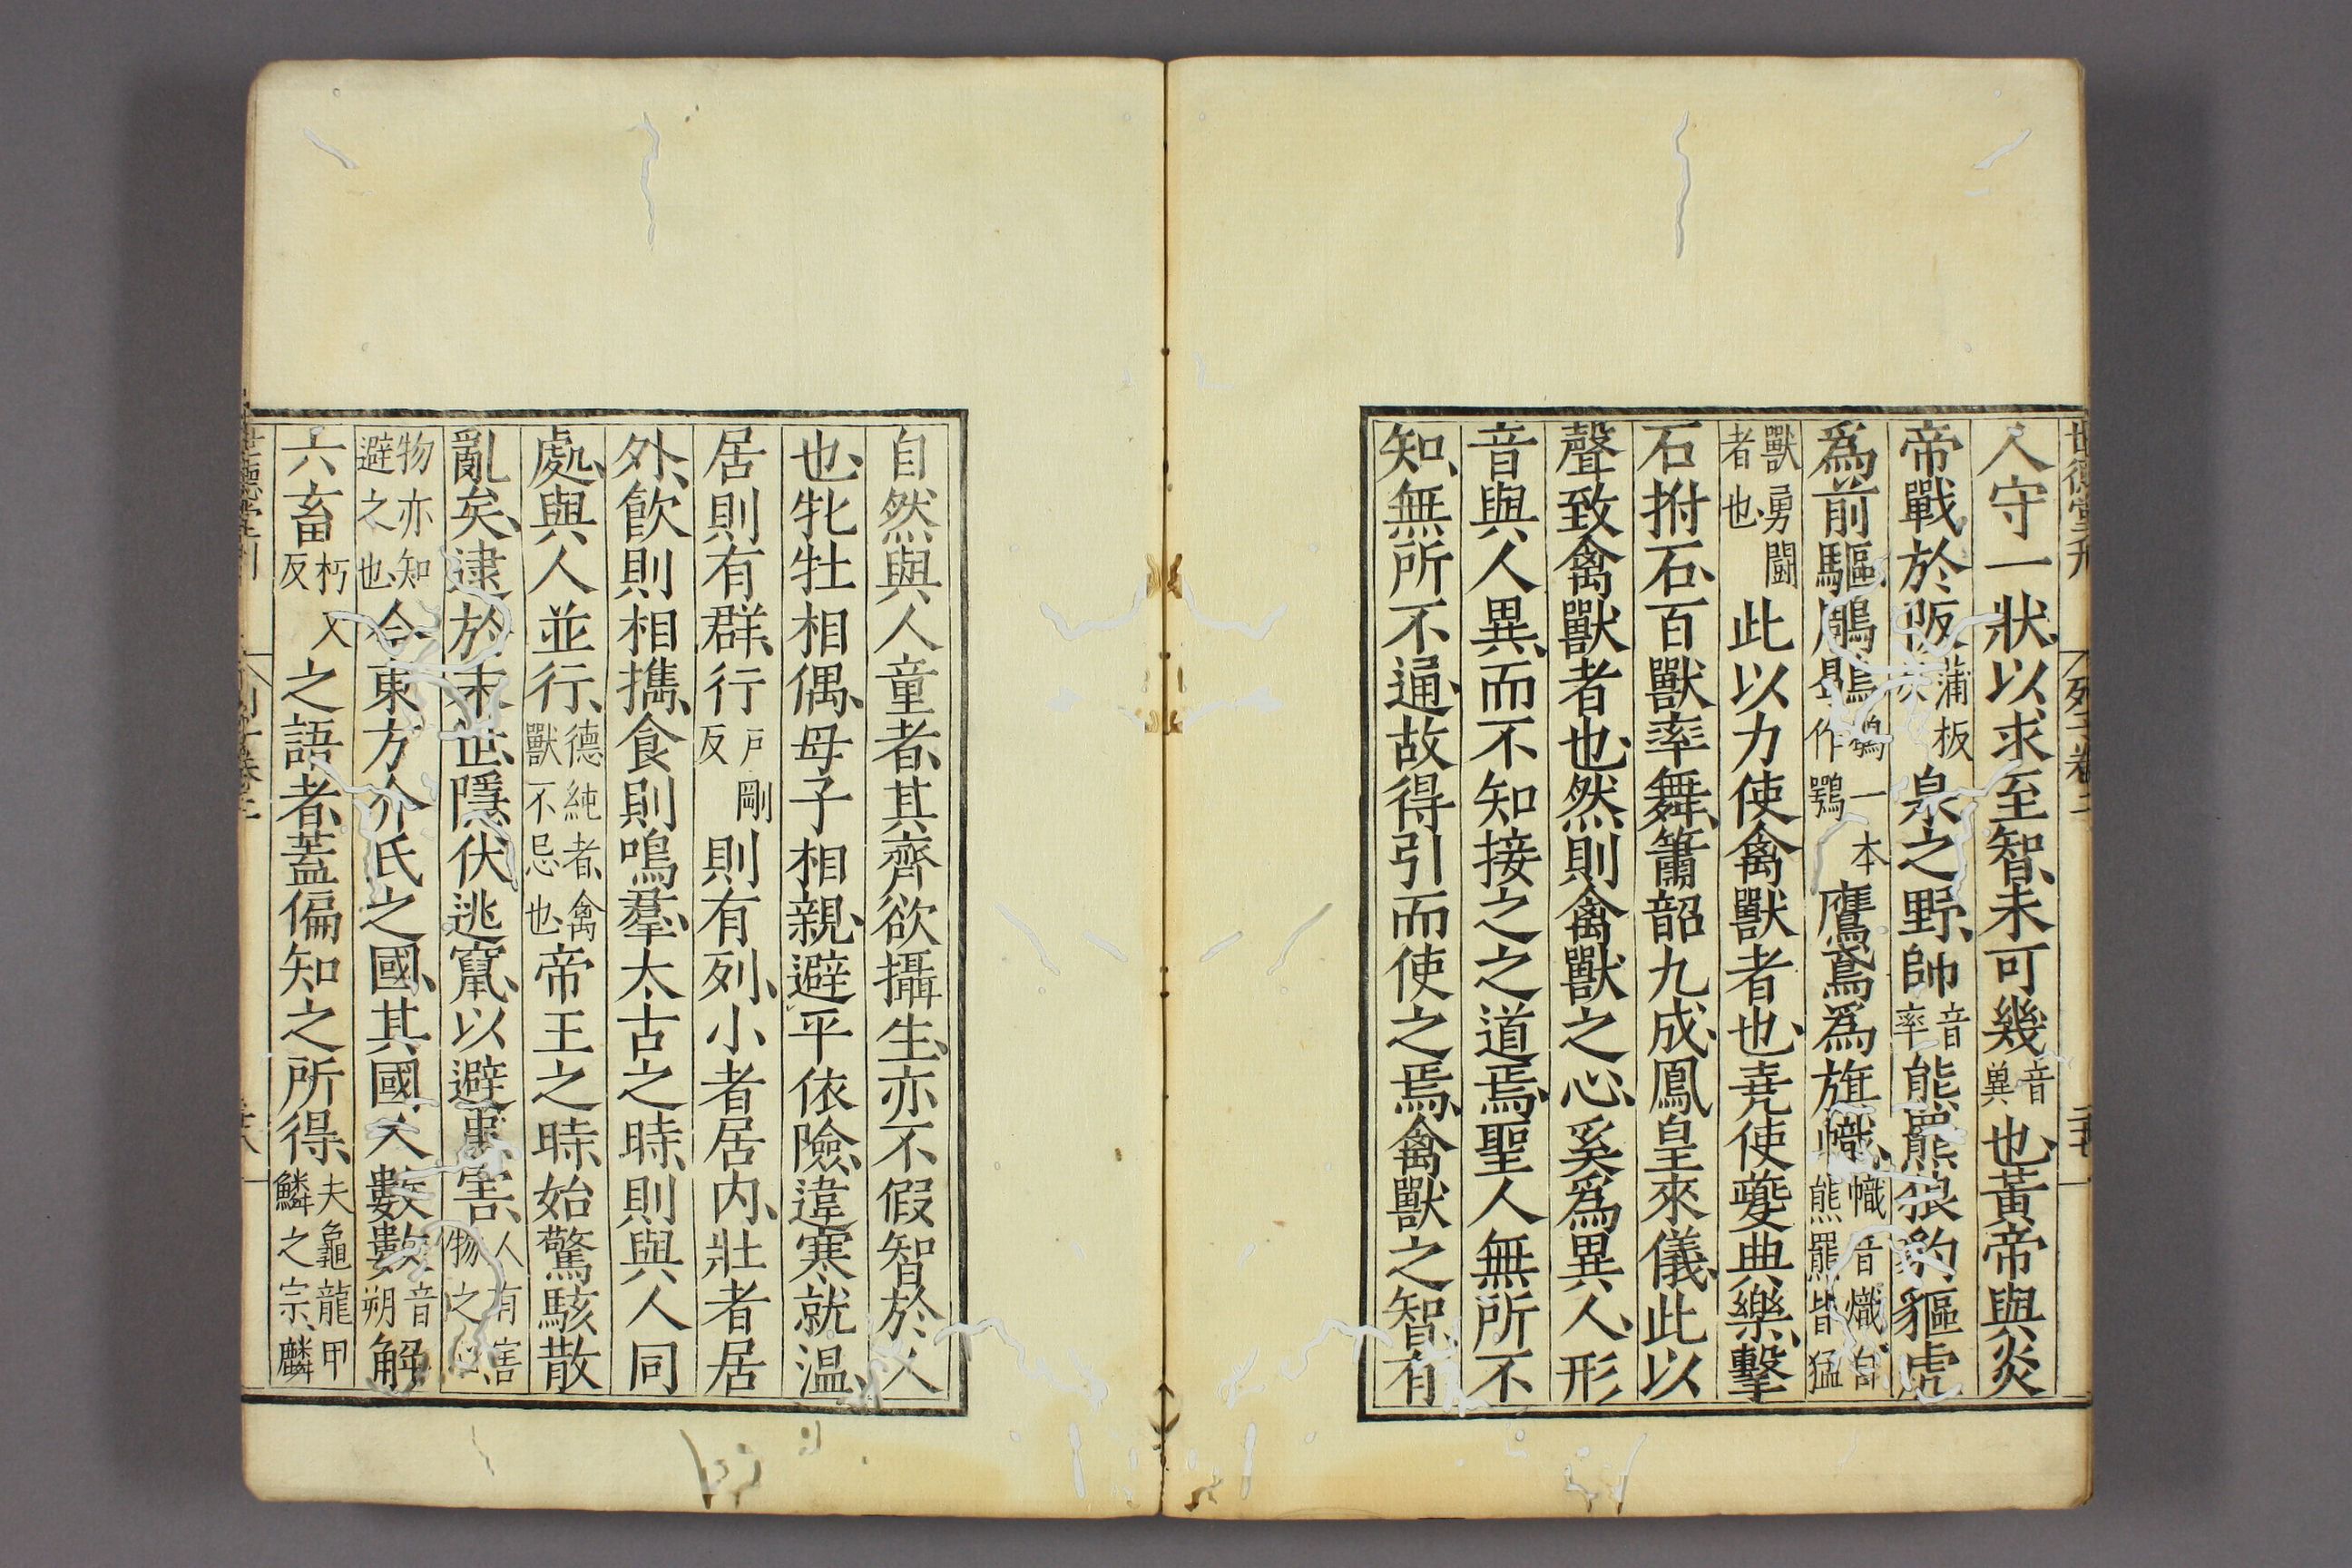 人守一狀、以求至智、未可幾音兾也、黃帝與炎
帝戰於阪蒲板反泉之野、帥音率熊羆狼豹貙虎
爲前驅、鵰鶡鶡一本作鶚鷹鳶爲旗幟、幟音熾、自熊羆皆猛
獸勇鬭者也、此以力使禽獸者也、堯使夔典樂、擊
石拊石、百獸率舞、簫韶九成、鳳皇來儀、此以
聲致禽獸者也、然則禽獸之心、奚爲異人、形
音與人異、而不知接之之道焉、聖人無所不
知、無所不通、故得引而使之焉、禽獸之智、有
自然與人童者、其齊欲攝生、亦不假智於人
也、牝牡相偶、母子相親、避平依險、違寒就温、
居則有群、行戶剛反則有列、小者居内、壯者居
外、飲則相擕、食則鳴羣、太古之時、則與人同
處、與人並行、德純者、禽獸不忌也、帝王之時、始驚駭散
亂矣、逮於末世、隱伏逃竄、以避患害、人有害物之心、
物亦知避之也、今東方介氏之國、其國人數數音朔解
六畜朽又反之語者、蓋偏知之所得、夫龜龍甲鱗之宗、麟